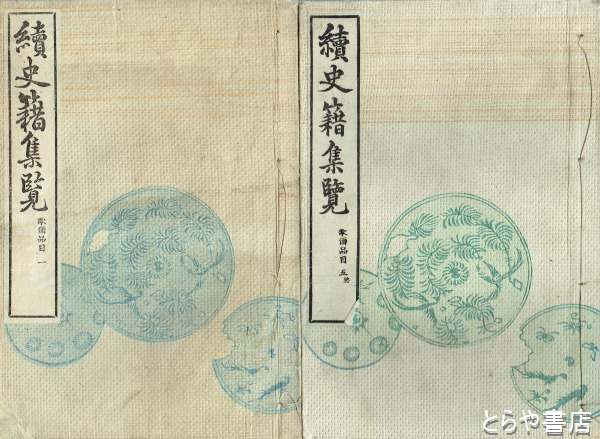 續史籍集覧
歌儛品目 一
續史籍集覽
歌儛品目 五終
とらや書店